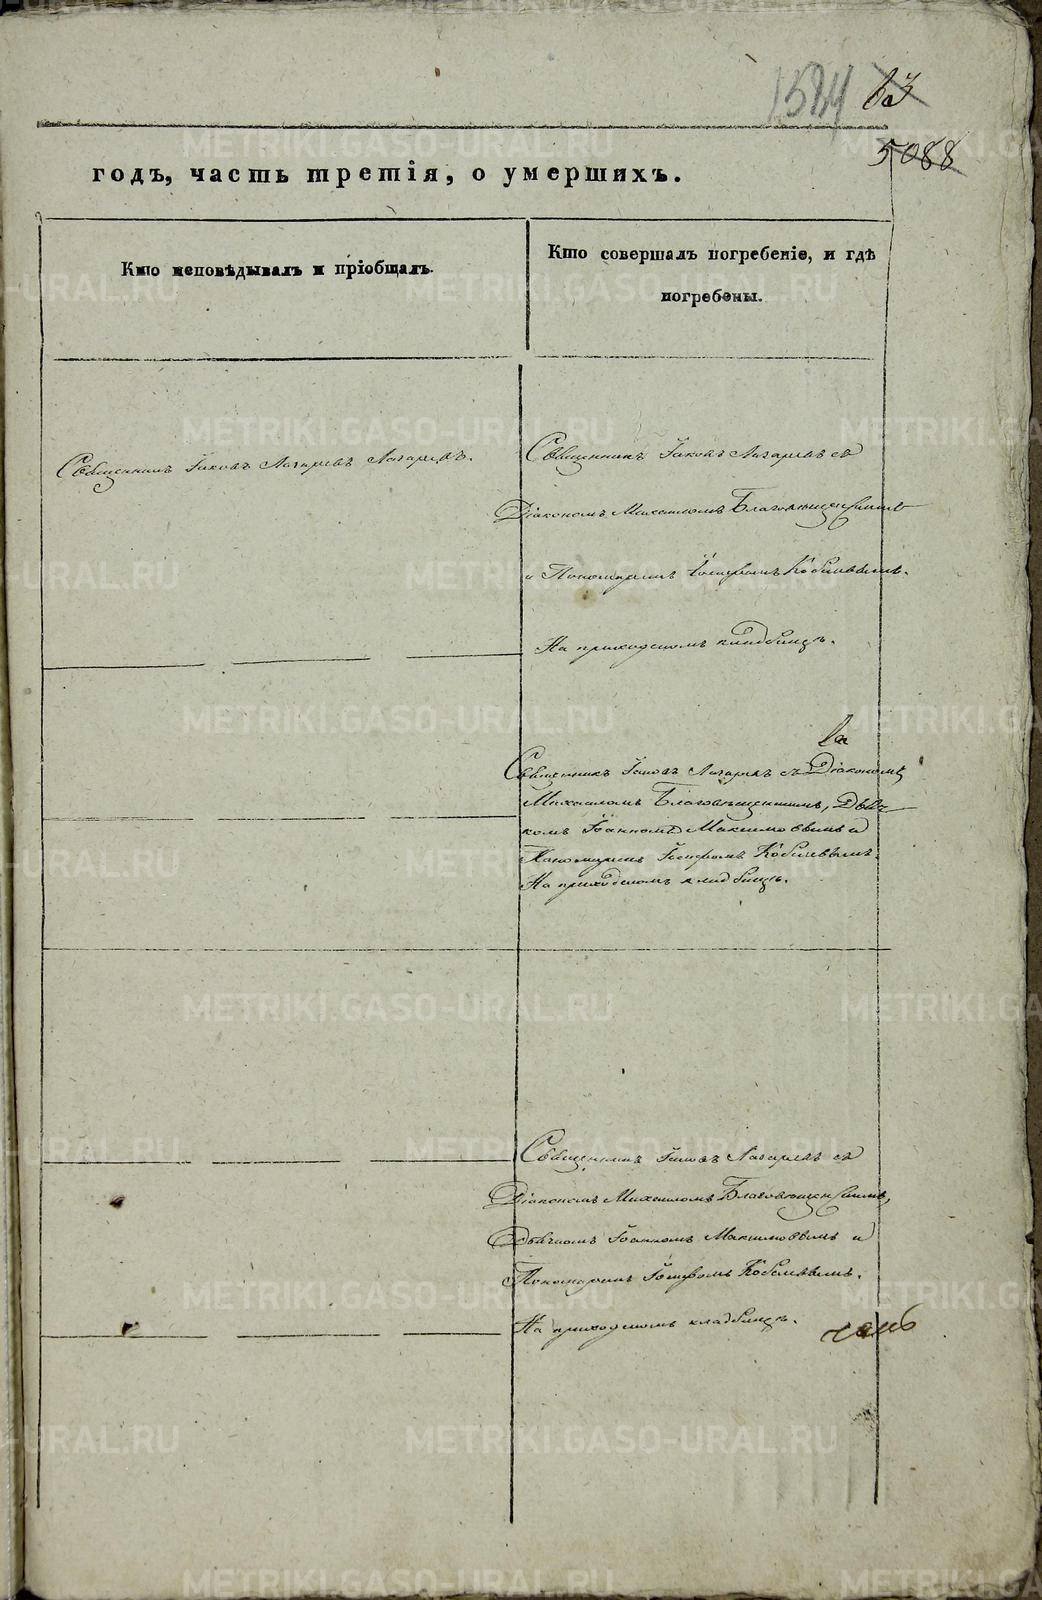 1584 63
5088
годъ, часть третія, о умершихъ.
Кто исповѣдывалъ и пріобщалъ.
Кто совершалъ погребеніе, и гдѣ
погребены.
Священникъ Іаковъ Лазаревъ Лазаревъ.
Священникъ Іаковъ Лазаревъ съ
Діакономъ Михаиломъ Благовѣщенскимъ
и Пономаремъ Іосифомъ Кобылевымъ.
На приходскомъ кладбищѣ.
Священникъ Іаковъ Лазаревъ съ Діакономъ
Михаиломъ Благовѣщенскимъ, Дьяч
комъ Іоанномъ Максимовымъ и
Пономаремъ Іосифомъ Кобылевымъ.
На приходскомъ кладбищѣ.
Священникъ Іаковъ Лазаревъ съ
Діакономъ Михаиломъ Благовѣщенскимъ,
Дьячкомъ Іоанномъ Максимовымъ и
Пономаремъ Іосифомъ Кобылевымъ.
На приходскомъ кладбищѣ.
METRIKI.GASO-URAL.RU